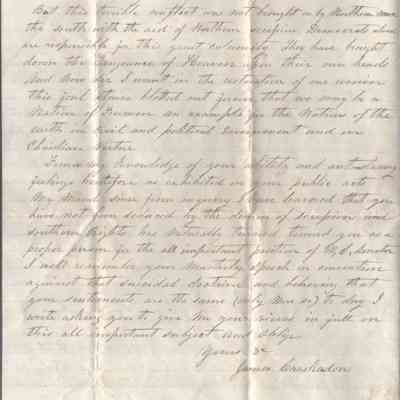 But this terrible conflict was not brought on by Northern men
the South with the aid of Northern secession Democrats alone
are responsible for this great calamity. They have brought
down the vengeance of Heaven upon their own heads
and now Sir I want in the restoration of our union
this foul stain blotted out forever that we may be a
Nation of Freemen an example for the Nations of the
earth in Civil and political Government and in
Christian virtue
From my knowledge of your ability and anti slavery
feelings heretofore as exhibited in your public acts
My Mind since from inquiry I have learned that you
have not been seduced by the demon of Secession and
Southern Rights has naturally turned toward you as a
proper person in the all important position of U, S, Senator
I well remember your Masterly speech in
against that suicidal doctrine and believing that
your sentiments are the same (only more so) to day I
write asking you to give me your views in full on
this all important subject and oblige
Yours &c
James